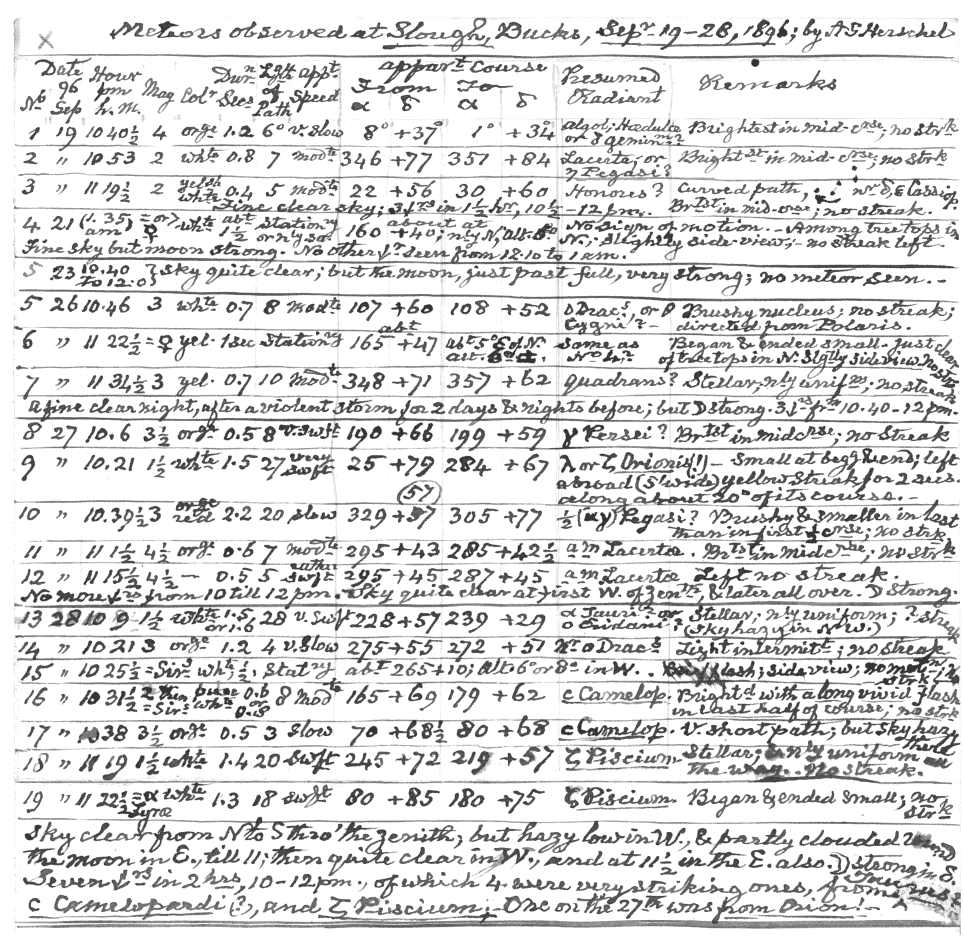 Meteors observed at Slough, Bucks, Sepr. 19-28, 1896; by A S Herschel
Date Hour Durn Lgth appt. appart. Course Presumed Remarks
96 pm Mag Colr. Secs of Speed From To Radiant
No. Sep h. m. Path α δ α δ
1 19 10 40½ 4 orge 1.2 6° v. slow 8° +37° 1° +34 Algol; Hædulæ Brightest in mid-crse; no strk
or δ geminm?
2 " 10.53 2 whte 0.8 7 modte 346 +77 351 +84 Lacertæ, or Brightst in mid-crse, no strk
η Pegasi?
3 " 11 19½ 2 yelsh whte 0.4 5 modte 22 +56 30 +60 Honores? Curved path, nr δ, ε Cassiop.
Fine clear sky; 3 in 1½ hr, 10½ -12 pm. Brtst in mid-crse; no streak.
4 21 (1.35 am) = or > ♀ whte abt 1½ stationry or nly so. about at 160 +40; nly N, alt. No sign of motion. - Among tree tops in
N.; slightly side-view; no streak left
Fine sky but moon strong. No other seen from 12.10 to 1 am.
5 23 10.40 to 12.0 } Sky quite clear; but the moon, just past full, very strong; no meteor seen. -
5 26 10.46 3 whte 0.7 8 modte 107 +60 108 +52 o Dracs, or Brushy nucleus; no streak;
Cygni? - directed from Polaris.
6 " 11 22½ = ♀ yel. 1sec Stationry abt 165 +47 abt 5° E of N. alt. same as Began & ended small. Just clear
No. 4? of tree tops in N. Slgtly side view, no strk
7 " 11 34½ 3 yel. 0.7 10 modte 348 +71 357 +62 quadrans? Stellar, nly unifm; no streak
A fine clear night, after a violent storm for 2 days & nights before; but D strong. 3 frm 10.40-12 pm.
8 27 10.6 3½ orge 0.5 8 v. swft 190 +66 199 +59 γ Persei? Brtst in mid crse; no Streak
9 " 10.21 1½ whte 1.5 27 very swft 25 +79 284 +67 λ or ζ Orionis(!) - Small at beg & end; left
a broad (5' wide) yellow streak for 2 secs.
(57) along about 20° of its course. -
10 " 10.39½ 3 orge red 2.2 20 slow 329 +57 305 +77 ½(αγ) Pegasi? Brushy & smaller in last
than in first ½ crse; no strk
11 " 11 1½ 4½ orge 0.6 7 modte 295 +43 285 +42½ a m Lacertæ. Brtst in mid crse, no strk
12 " 11 15½ 4½ - 0.5 5 rather swft 295 +45 287 +45 a m Lacertæ Left no streak.
No more from 10 till 12 pm. Sky quite clear at first W. of Zenth, & later all over. D strong.
13 28 10 9 1½ whte 1.5 or 1.6 28 v. swft 228 +57 239 +29 α Tauri? or Stellar; nly uniform; ? streak
o Eridani? (Sky hazy in N.W.)
14 " 10 21 3 orge 1.2 4 v. slow 275 +55 272 +51 Nr o Dracs Light intermitt; no streak
15 " 10 25½ = Sirs whte ½ Statry abt 265 +10; Alt 6° or 8° in W. flash; side view; no motn,
strk
16 " 10 31½ 2 then = Sirs pure whte 0.6 or 0.8 8 modte 165 +69 179 +62 c Camelop. Brightd with a long vivid flash
in last half of course; no strk
17 " 10 38 3½ orge 0.5 3 slow 70 +68½ 80 +68 c Camelop. V. short path; but sky hazy
18 " 11 19 1½ whte 1.4 20 swft 245 +72 219 +57 ζ Piscium Stellar; & nly uniform all
the way. No streak.
19 " 11 22½ = α Lyræ whte 1.3 18 swft 80 +85 180 +75 ζ Piscium. Began & ended small; no
strk
Sky clear from N to S thro' the zenith; but hazy low in W., & partly clouded
the moon in E., till 11; then quite clear in W., and at 11½ in the E. also. strong in
Seven in 2 hrs, 10-12 pm., of which 4 were very striking ones, from
c Camelopardi (?), and ζ Piscium; - One on the 27th was from Orion! -